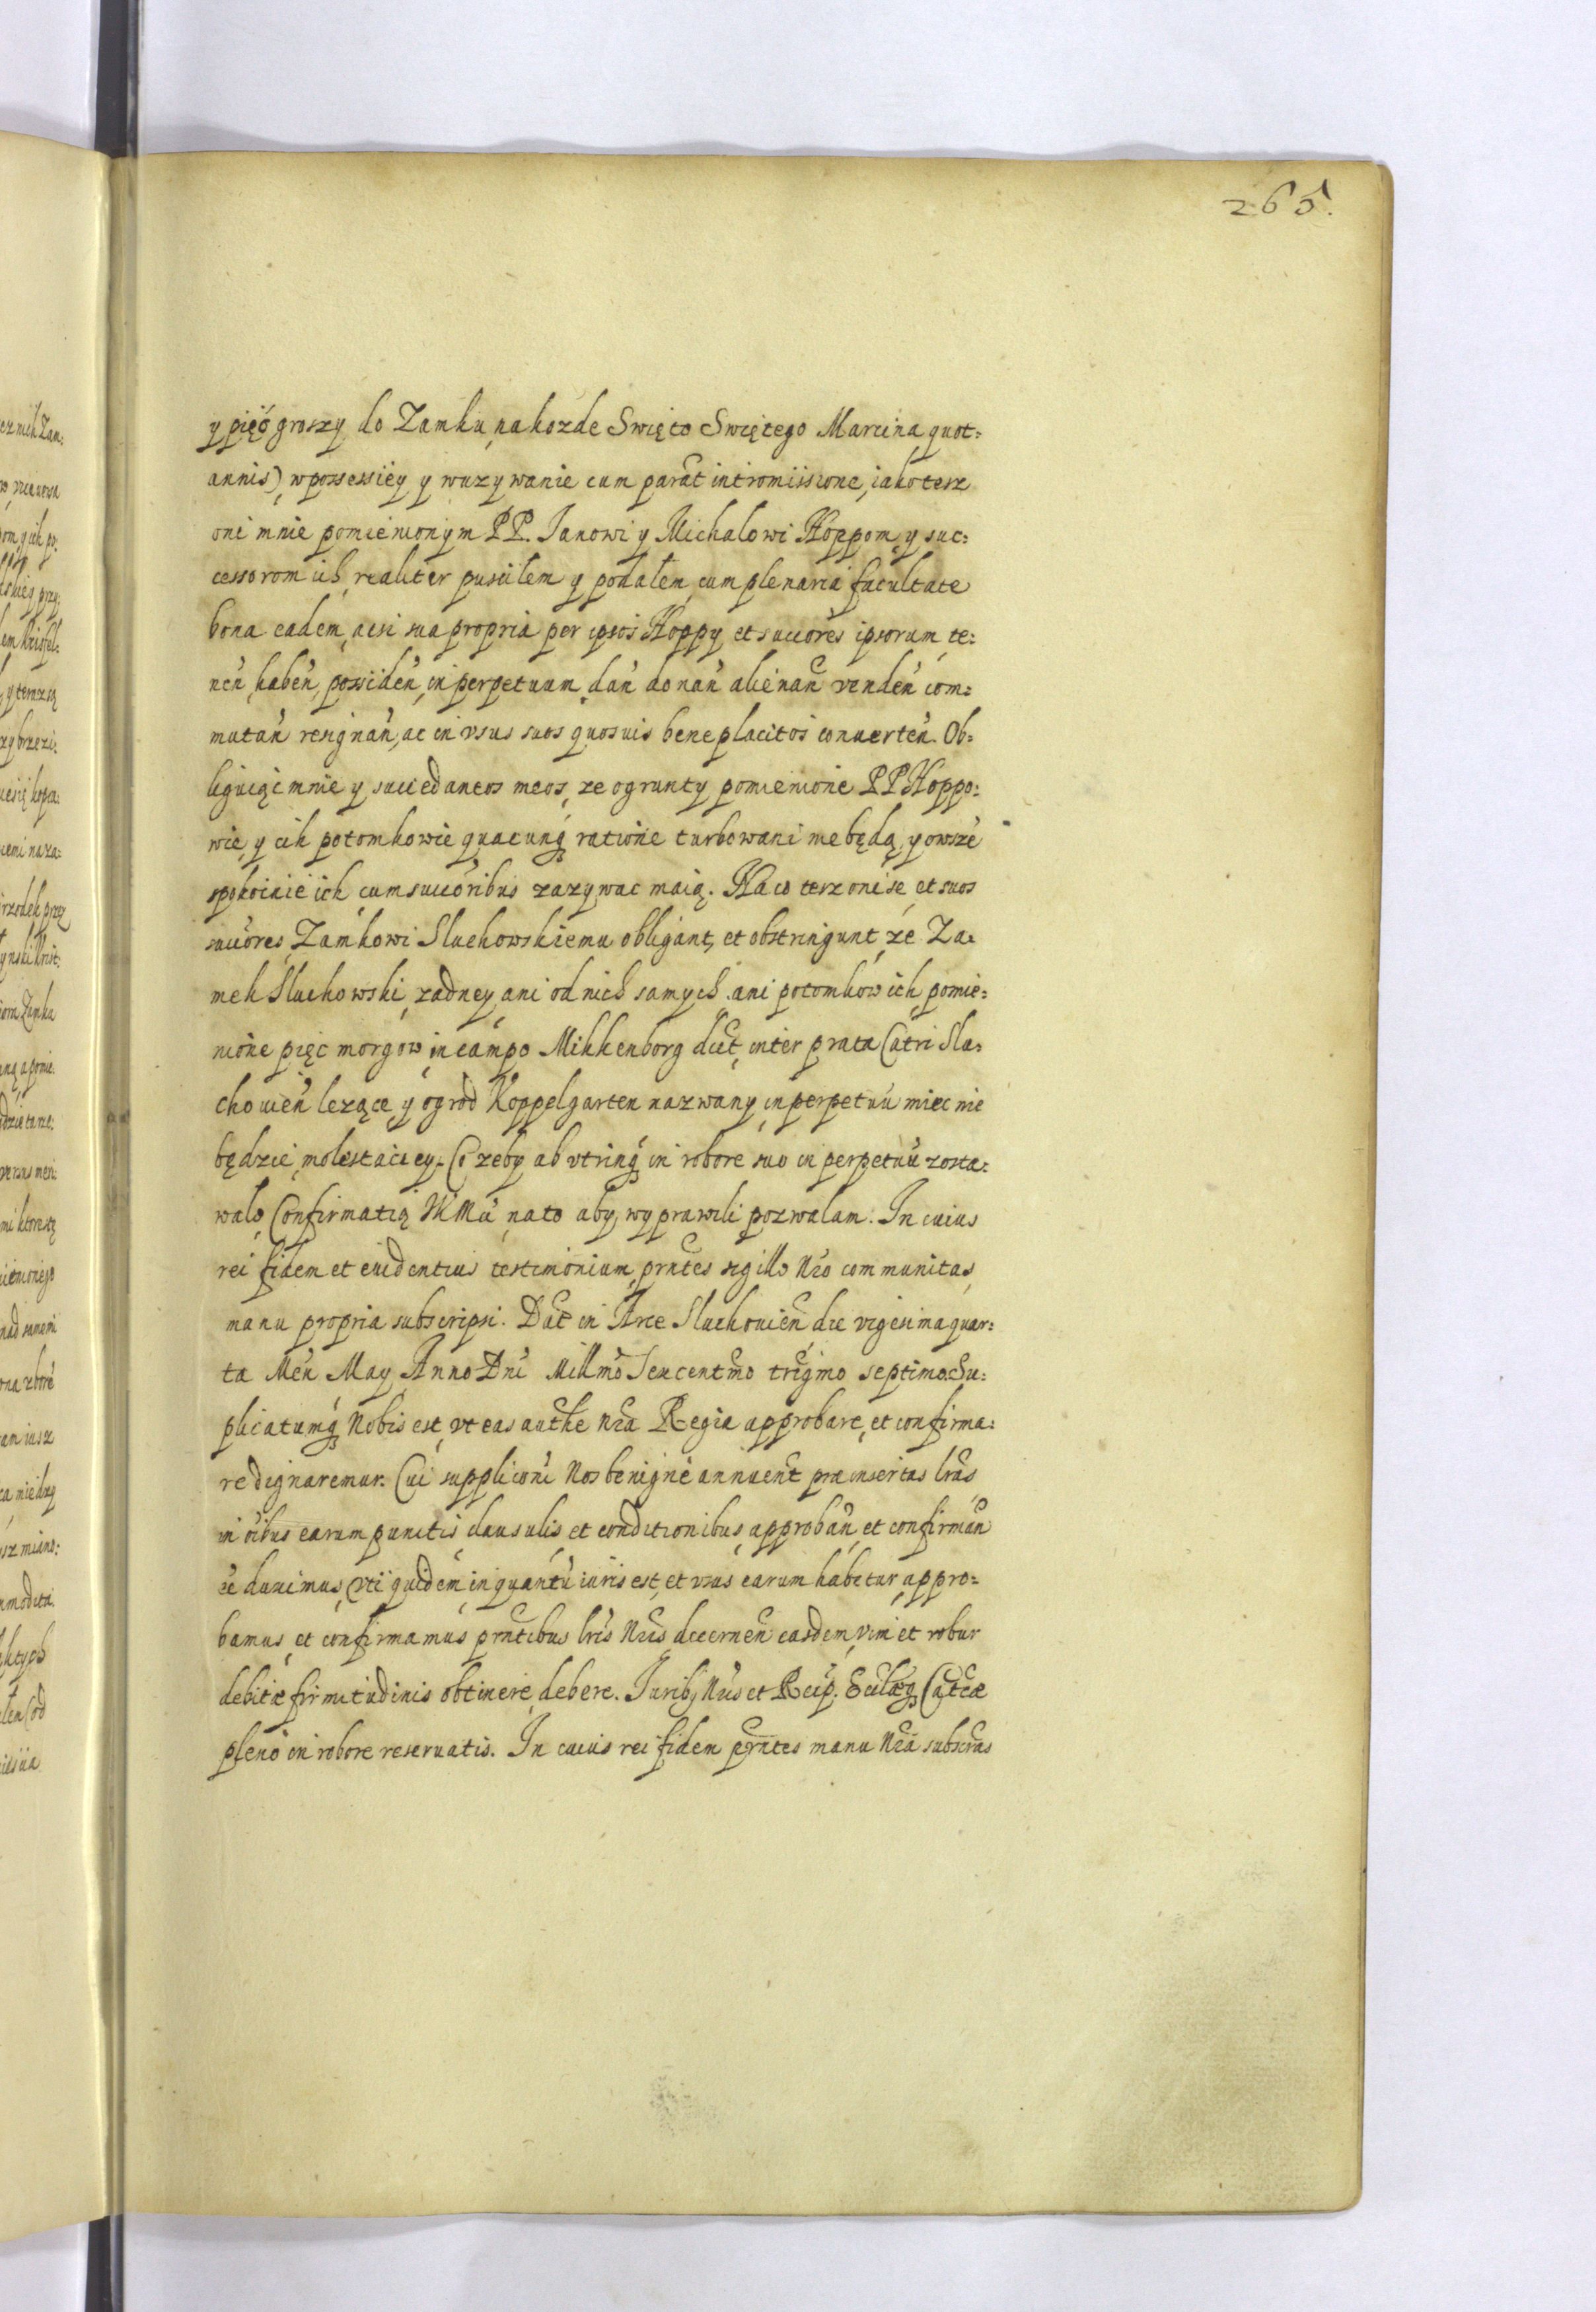 265.
y pięć groszy do Zamku, na kozde Swięto Swiętego Marcina quot=
annis) w possessiey y wuzywanie cum parat intromissione, iako tesz
oni mnie pomienionym PP. Janowi y Michalowi Hoppom, y suc=
cessorom ich, realiter pusciłem y podałem, cum plenaria facultate
bona eadem, acsi sua propria per ipsos Hoppy et succores ipsorum, te=
nen̄, haben̄, possiden̄, in perpetuum, dan̄ donan̄ alienan̄ venden̄ com=
mutan̄ resignan̄, ac in vsus suos quosuis beneplacitos conuerten̄. Ob=
liguiąc mnie y succedaneos meos, ze o grunty pomienione PP Hoppo=
wie, y ich potomkowie quacunq̨ ratione turbowani nie będą, y owsze
spokoinie ich cum succoribus zazywac maią. Na co tesz oni se, et suos
succores, Zamkowi Sluchowskiemu obligant, et obstringunt, ze Za=
mek Sluchowski, zadney ani od nich samych, ani potomkow ich, pomie=
nione pięc morgow, in campo Mikkenborg dict, inter prata Cātri Slu=
chouien̄ lezące, y ogrod Koppelgarten nazwany, in perpetuū miec nie
będzie, molestaciey. Co zeby ab vtrinq̨ in robore suo in perpetuū zosta=
walo, Confirmatią na to aby, wyprawili pozwalam. In cuius
rei fidem et euidentius testimonium, prntes sigillo Nro communitas,
manu propria subscripsi. Dat in Arce Sluchouien̄ die vigesima quar=
ta Men̄ May, Anno Dni Millmo Sexcentmo trigmo septimo. Su=
plicatumq̨ Nobis est, vt eas authe Nra Regia approbare, et confirma=
re dignaremur. Cui suppliconi Nos benigne annuent praeinsertas lras,
in oibus earum punctis, clausulis, et conditionibus, approban̄, et confirman̄
ee duximus, vti quidem, in quantū iuris est, et vsus earum habetur, appro=
bamus, et confirmamus prntibus lris Nris decernen̄ easdem, vim et robur
debitae firmitudinis obtinere, debere. Jurib, Nris et Reip. Ecclaeq̨ Cathcae
pleno in robore reseruatis. In cuius rei fidem prntes manu Nra subscras